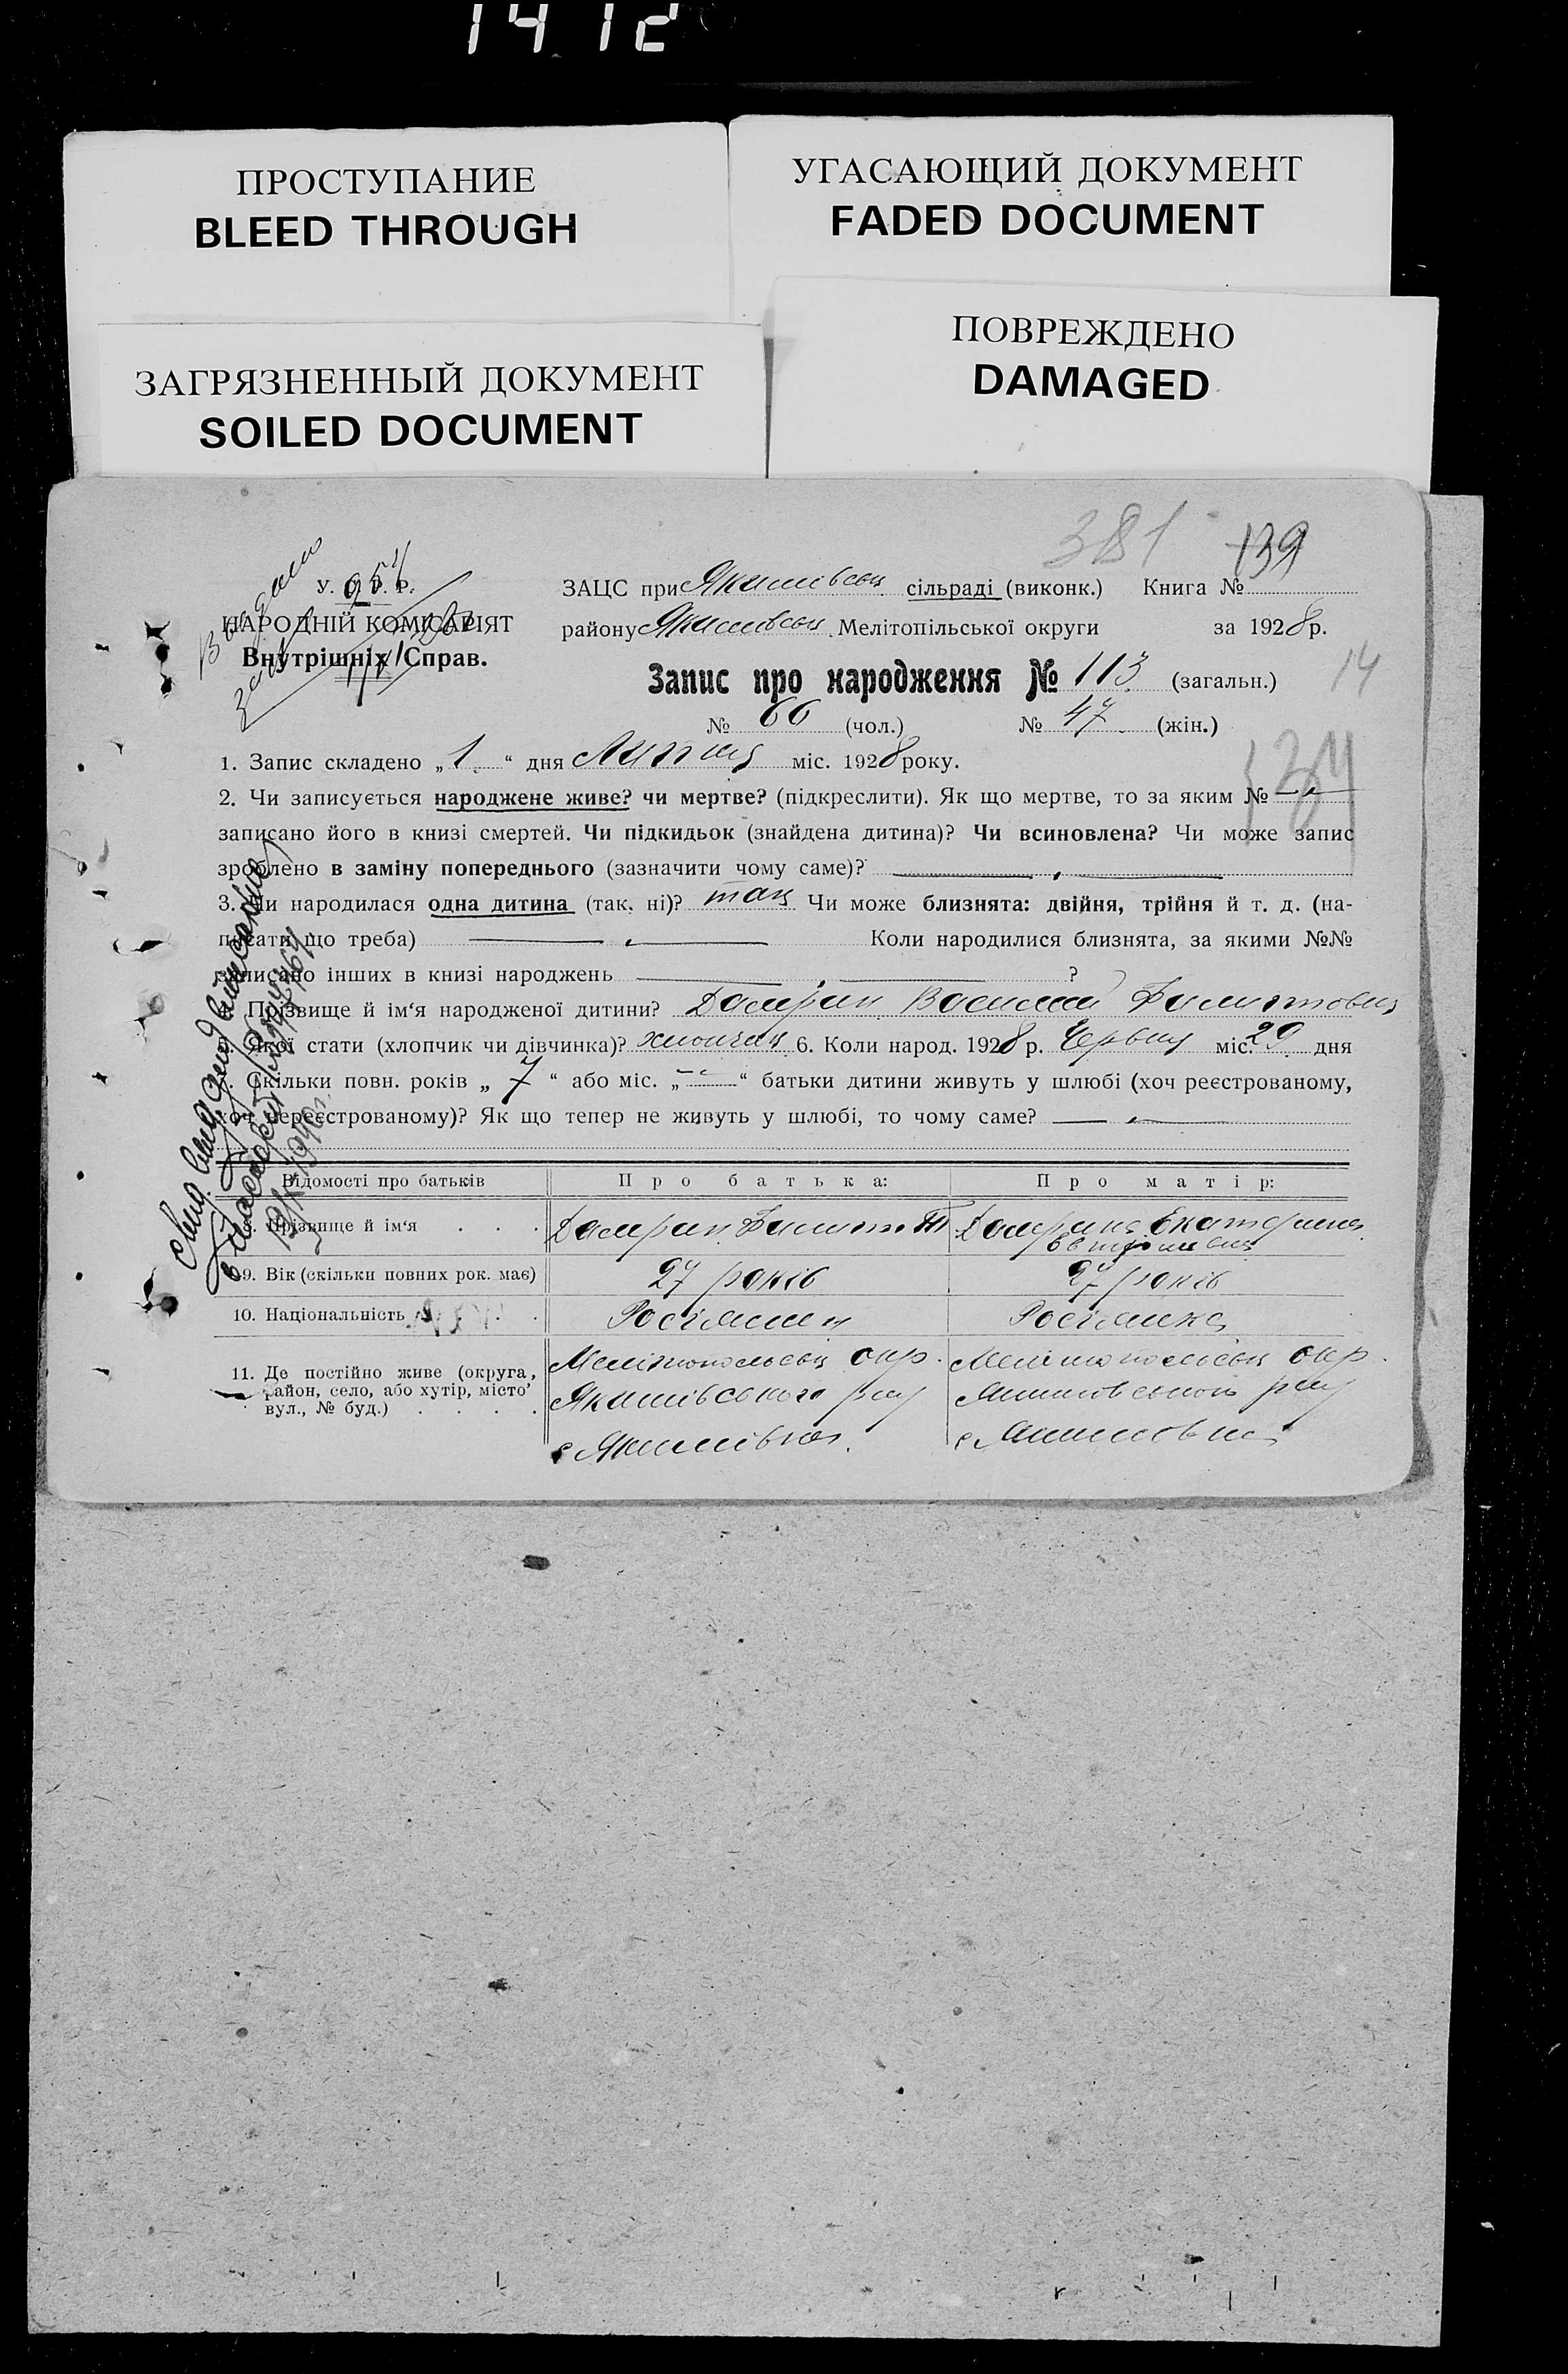 1412
ПРОСТУПАНИЕ
BLEED THROUGH
УГАСАЮЩИЙ ДОКУМЕНТ
FADED DOCUMENT
ЗАГРЯЗНЕННЫЙ ДОКУМЕНТ
SOILED DOCUMENT
ПОВРЕЖДЕНО
DAMAGED
381 139
У. С. Р. Р.
НАРОДНІЙ КОМИСАРІЯТ
Внутрішніх Справ.
ЗАЦС при Якимівськ сільраді (виконк.) Книга №
району Якимівськ Мелітопільської округи за 1928 р.
Запис про народження № 113 (загальн.) 14
№ 66 (чол.) № 47 (жін.)
134
1. Запис складено „1“ дня Липця міс. 1928 року.
2. Чи записується народжене живе? чи мертве? (підкреслити). Як що мертве, то за яким №
записано його в книзі смертей. Чи підкидьок (знайдена дитина)? Чи всиновлена? Чи може запис
зроблено в заміну попереднього (зазначити чому саме)?
3. Чи народилася одна дитина (так, ні)? так Чи може близнята: двійня, трійня й т. д. (на-
писати що треба) Коли народилися близнята, за якими №№
записано інших в книзі народжень ?
4. Прізвище й ім‘я народженої дитини? Василий
5. Якої стати (хлопчик чи дівчинка)? хлопчик 6. Коли народ. 1928 р. Червня міс. 29 дня
7. Скільки повн. років „ 7 “ або міс. „ “ батьки дитини живуть у шлюбі (хоч реєстрованому,
хоч нереєстрованому)? Як що тепер не живуть у шлюбі, то чому саме?
Відомості про батьків Про батька: Про матір:
8. Прізвище й ім‘я Екатерина
9. Вік (скільки повних рок. має) 27 років 27 років
10. Національність Росіянин Росіянка
11. Де постійно живе (округа, район, село, або хутір, місто вул., № буд.)
Мелітопольськ окр. Мелітопольськ окр.
Якимівського рай
с Якимівка.